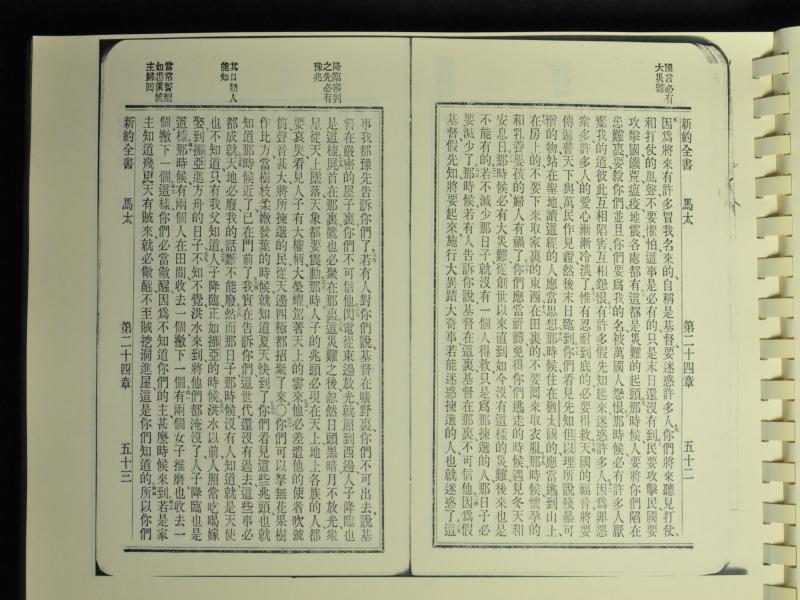 豫言必有
大災難
新約全書 馬太 第二十四章 五十二
因爲將來有許多冒我名來的自稱是基督要迷惑許多人你們將來聽見打仗
和打仗的風聲不要懼怕這事是必有的只是末日還沒有到民要攻擊民國要
攻擊國饑荒瘟疫地震各處都有這都是災難的起頭那時候人要將你們陷在
患難裏要殺你們並且你們要爲我的名被萬國人怨恨那時候必有許多人厭
棄我的道彼此互相陷害互相怨恨有許多假先知起來迷惑許多人因爲罪惡
衆多許多人的愛心漸漸冷淡了惟有忍耐到底的必要得救天國的福音將要
傳遍普天下與萬民作見證然後末日臨到你們看見先知但以理所說殘暴可
惜的物站在聖地讀這經的人應當思想那時候住在猶太國的應當逃到山上
在房上的不要下來取家裏的東西在田裏的不要回來取衣服那時候懷孕的
和乳養嬰孩的婦人有禍了你們應當祈禱免得你們逃走的時候遇見冬天和
安息日那時候必有大災難從創世以來直到如今沒有這樣的災難後來也是
不能有的若不減少那日子就沒有一個人得救只是爲那揀選的人那日子必
要減少了那時候若有人告訴你說基督在這裏基督在那裏不可信他因爲假
基督假先知將要起來施行大異蹟大奇事若能迷惑揀選的人也就迷惑了這
降臨審判
之先必有
豫兆
其日無人
能知
當常警醒
如忠僕候
主歸囘
事我都豫先告訴你們了若有人對你們說基督在曠野裏你們不可出去說基
督在嚴密的屋子裏你們不可信他閃電從東邊放光就照到西邊人子降臨也
是這樣屍首在那裏鷹也必聚在那裏這災難之後忽然日頭黑暗月不放光衆
星從天上墜落天象都要震動那時人子的兆頭必現在天上地上各族的人都
要哀哭看見人子有大權柄大榮耀駕著天上的雲來他必差遣他的使者吹號
筒聲音甚大將所揀選的民從天邊四極都招聚了來〇你們可以拏無花果樹
作比方當樹枝柔嫩發葉的時候就知道夏天快到了你們看見這些兆頭也就
知道那時候近了已在門前了我實在告訴你們這世代還沒有過去這些事必
都成就天地必廢我的話斷不能廢然而那日子那時候沒有人知道就是天使
也不知道只有我父知道人子降臨正如挪亞的時候洪水以前人照常吃喝嫁
娶到挪亞進方舟的日子不知不覺洪水來到將他們都淹沒了人子降臨也是
這樣那時候有兩個人在田間收去一個撇下一個有兩個女子推磨也收去一
個撇下一個這樣你們必當儆醒因爲不知道你們的主甚麼時候來到若是家
主知道幾更天有賊來就必儆醒不至賊挖洞進屋這是你們知道的所以你們
新約全書 馬太 第二十四章 五十三